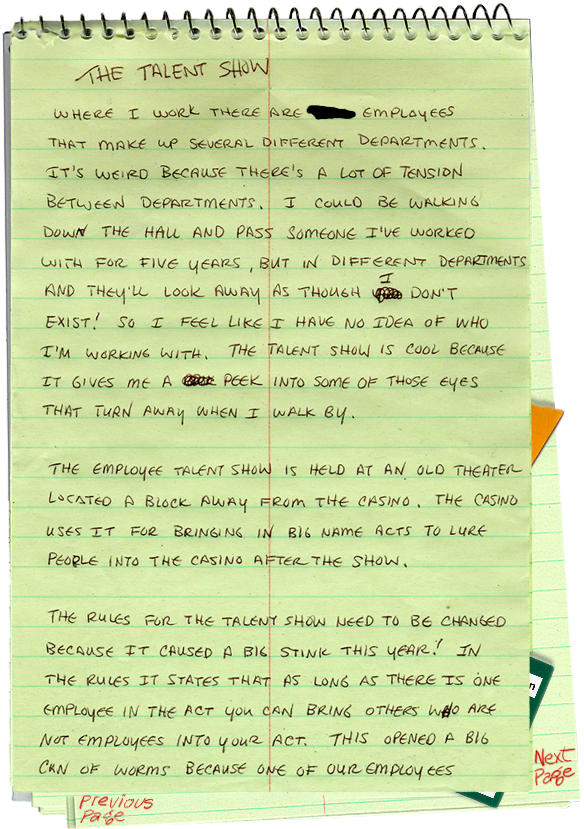 THE TALENT SHOW
WHERE I WORK THERE ARE EMPLOYEES
THAT MAKE UP SEVERAL DIFFERENT DEPARTMENTS.
IT'S WEIRD BECAUSE THERE'S A LOT OF TENSION
BETWEEN DEPARTMENTS. I COULD BE WALKING
DOWN THE HALL AND PASS SOMEONE I'VE WORKED
WITH FOR FIVE YEARS, BUT IN DIFFERENT DEPARTMENTS
AND THEY'LL LOOK AWAY AS THOUGH I DON'T
EXIST! SO I FEEL LIKE I HAVE NO IDEA OF WHO
I'M WORKING WITH. THE TALENT SHOW IS COOL BECAUSE
IT GIVES ME A PEEK INTO SOME OF THOSE EYES
THAT TURN AWAY WHEN I WALK BY.
THE EMPLOYEE TALENT SHOW IS HELD AT AN OLD THEATER
LOCATED A BLOCK AWAY FROM THE CASINO. THE CASINO
USES IT FOR BRINGING IN BIG NAME ACTS TO LURE
PEOPLE INTO THE CASINO AFTER THE SHOW.
THE RULES FOR THE TALENT SHOW NEED TO BE CHANGED
BECAUSE IT CAUSED A BIG STINK THIS YEAR! IN
THE RULES IT STATES THAT AS LONG AS THERE IS ONE
EMPLOYEE IN THE ACT YOU CAN BRING OTHERS WHO ARE
NOT EMPLOYEES INTO YOUR ACT. THIS OPENED A BIG
CAN OF WORMS BECAUSE ONE OF OUR EMPLOYEES
Next
Page
Previous
Page